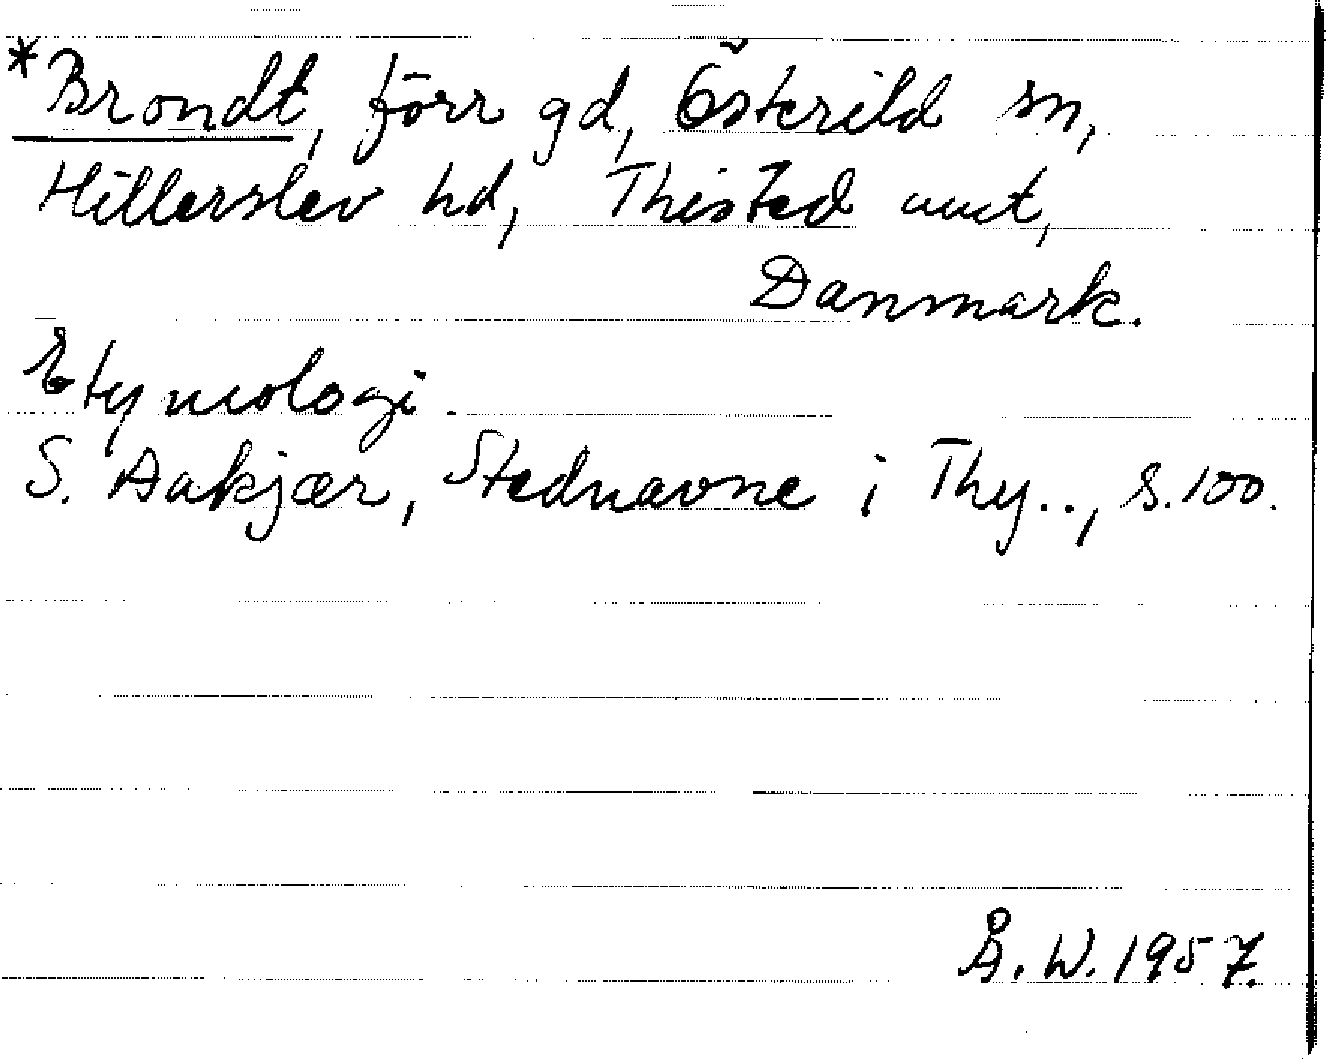 *Brondt, förr gd, Österild sn,
Hillerslev hd, Thisted amt,
Danmark.
Etymologi.
S. Aakjær, Stednavne i Thy.., s. 100.
Å. W. 1957.